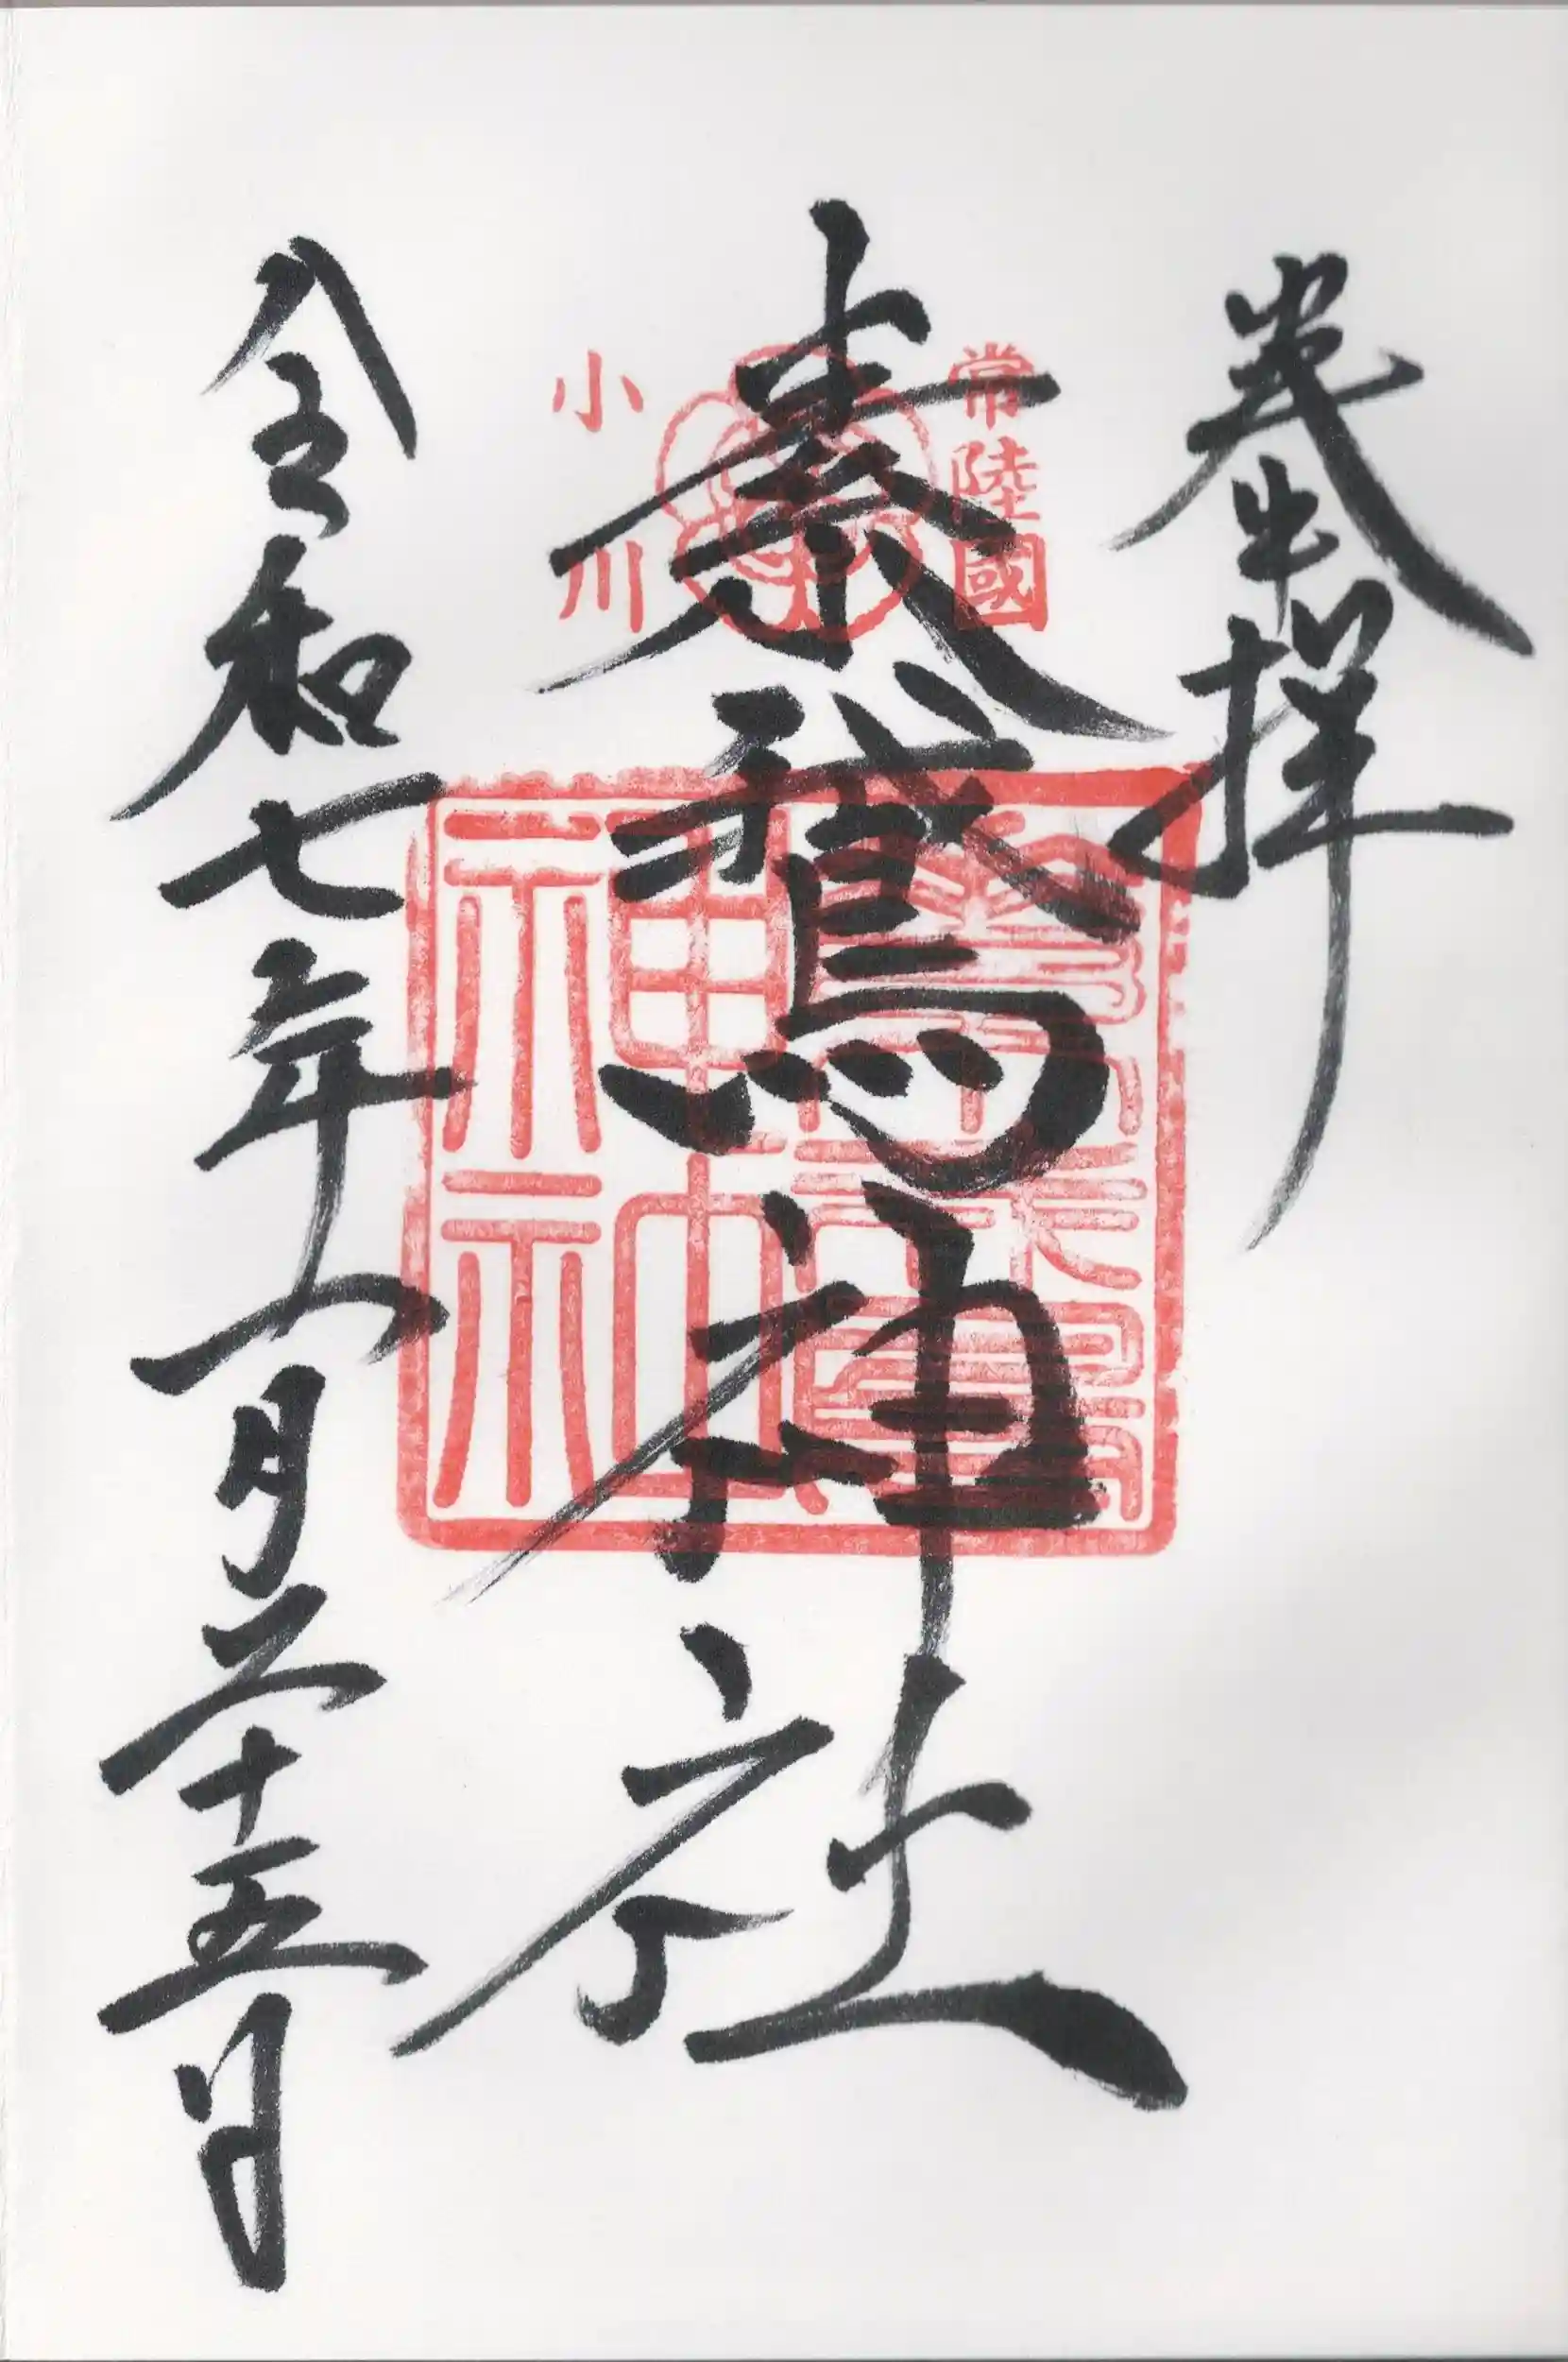 奉拜
常陸國
素鵞神社
小川
素鵞神社
令和七年八月二十五日